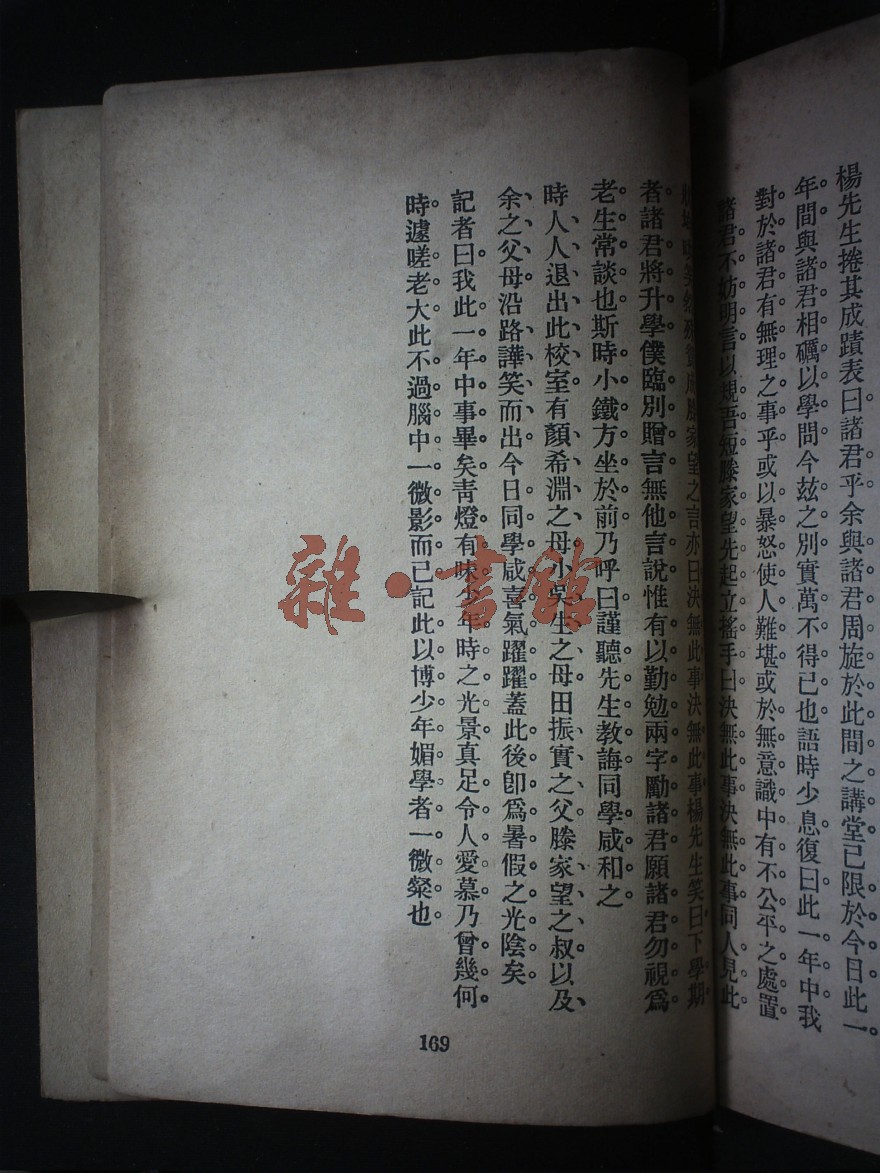 楊先生捲其成蹟表曰諸君乎余與諸君周旋於此間之講堂已限於今日此一
年間與諸君相礪以學問今玆之別實萬不得已也語時少息復曰此一年中我
對於諸君有無理之事乎或以暴怒使人難堪或於無意識中有不公平之處置
諸君不妨明言以規吾短滕家望先起立搖手曰決無此事決無此事同人見此
家望之言亦曰決無此事決無此事楊先生笑曰下學期
者諸君將升學僕臨別贈言無他言說惟有以勤勉兩字勵諸君願諸君勿視爲
老生常談也斯時小鐵方坐於前乃呼曰謹聽先生教誨同學咸和之
時人人退出此校室有顏希淵之母小吳生之母田振實之父滕家望之叔以及
余之父母沿路譁笑而出今日同學咸喜氣躍躍蓋此後卽爲暑假之光陰矣
記者曰我此一年中事畢矣靑燈有味少年時之光景真足令人愛慕乃曾幾何
時遽嗟老大此不過腦中一微影而已記此以博少年媚學者一微粲也
169
雜·書館